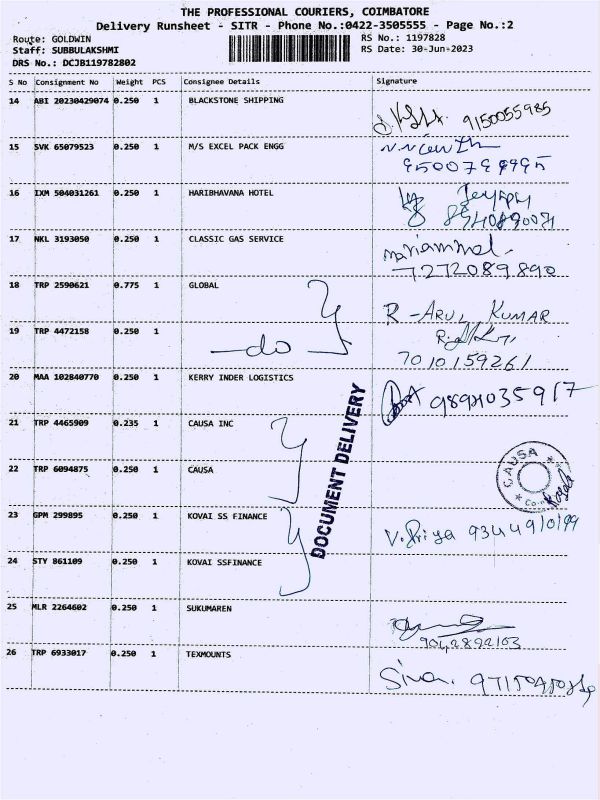 THE PROFESSIONAL COURIERS, COIMBATORE
Delivery Runsheet - SITR - Phone No.:0422-3505555 - Page No.:2
Route: GOLDWIN RS No.: 1197828
Staff: SUBBULAKSHMI RS Date: 30-Jun-2023
DRS No.: DCJB119782802
S No Consignment No Weight PCS Consignee Details Signature
14 ABI 20230429074 0.250 1 BLACKSTONE SHIPPING
9150055985
15 SVK 65079523 0.250 1 M/S EXCEL PACK ENGG
16 IXM 504031261 0.250 1 HARIBHAVANA HOTEL
17 NKL 3193050 0.250 1 CLASSIC GAS SERVICE
mariammal.
7272089890
18 TRP 2590621 0.775 1 GLOBAL
R-ARUL KUMAR
19 TRP 4472158 0.250 1 -do
7010159261
20 MAA 102840770 0.250 1 KERRY INDER LOGISTICS
DOCUMENT DELIVERY
21 TRP 4465909 0.235 1 CAUSA INC
CAUSA
22 TRP 6094875 0.250 1 CAUSA
23 GPM 299895 0.250 1 KOVAI SS FINANCE
V.Priya
24 STY 861109 0.250 1 KOVAI SSFINANCE
25 MLR 2264602 0.250 1 SUKUMAREN
26 TRP 6933017 0.250 1 TEXMOUNTS
Siva.